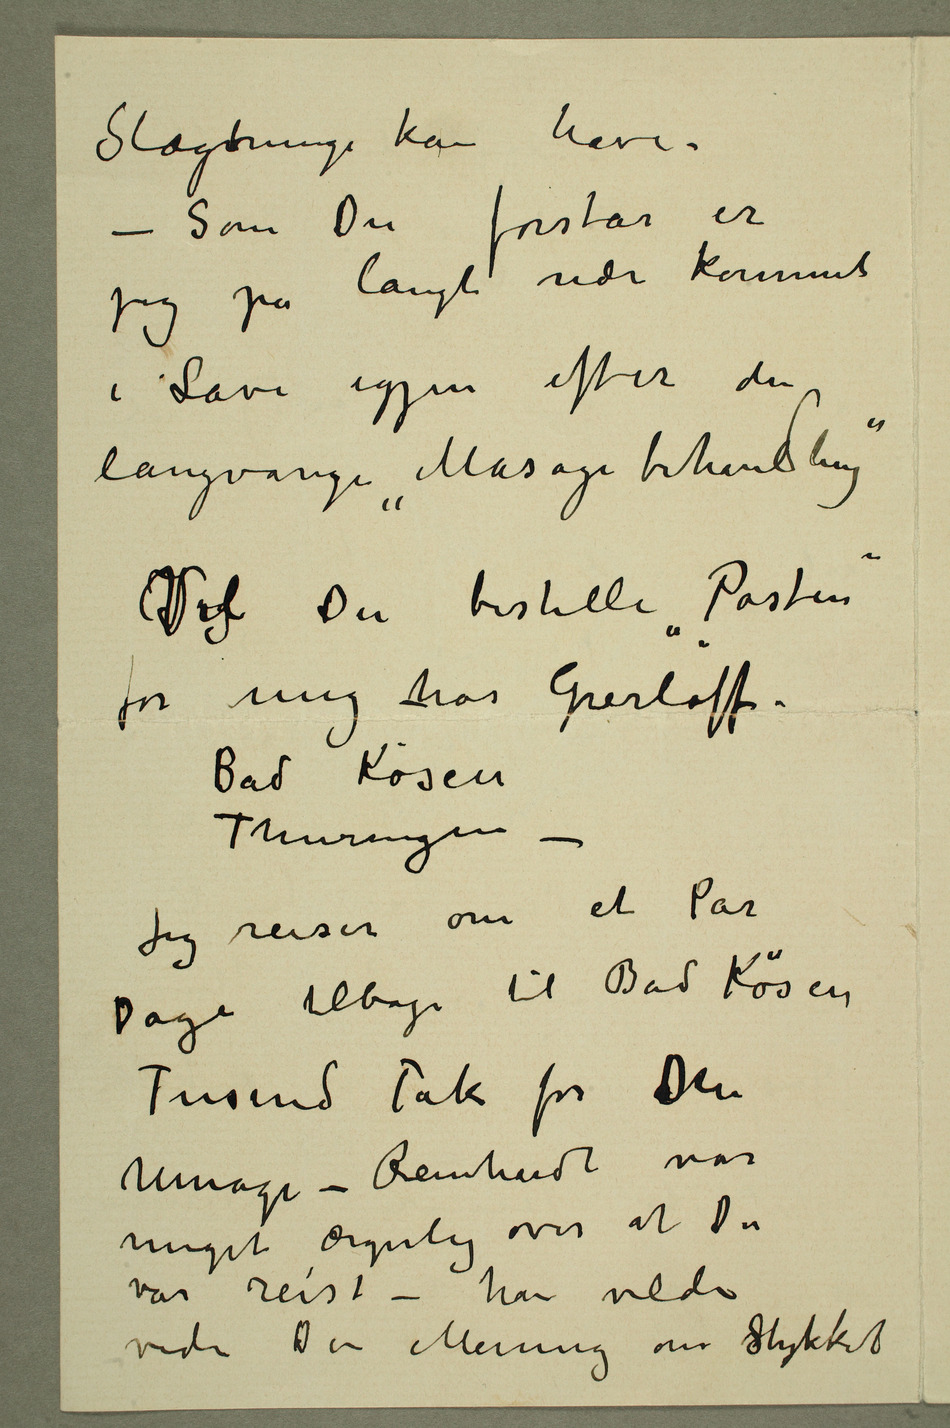 Slægtninge kan have.
– Som Du forstår er
jeg på langt nær kommet
i Lave igjen efter den
langvarige „Masagebehandling"
Vil Du bestille „Posten"
for mig hos Gierløff.
Bad Kösen
Thuringen –
Jeg reiser om et Par
Dage tilbage til Bad Kösen
Tusend Tak for Din
Umage – Reinhardt var
meget ærgerlig over at Du
var reist – han vilde
vide Din Mening om Stykket